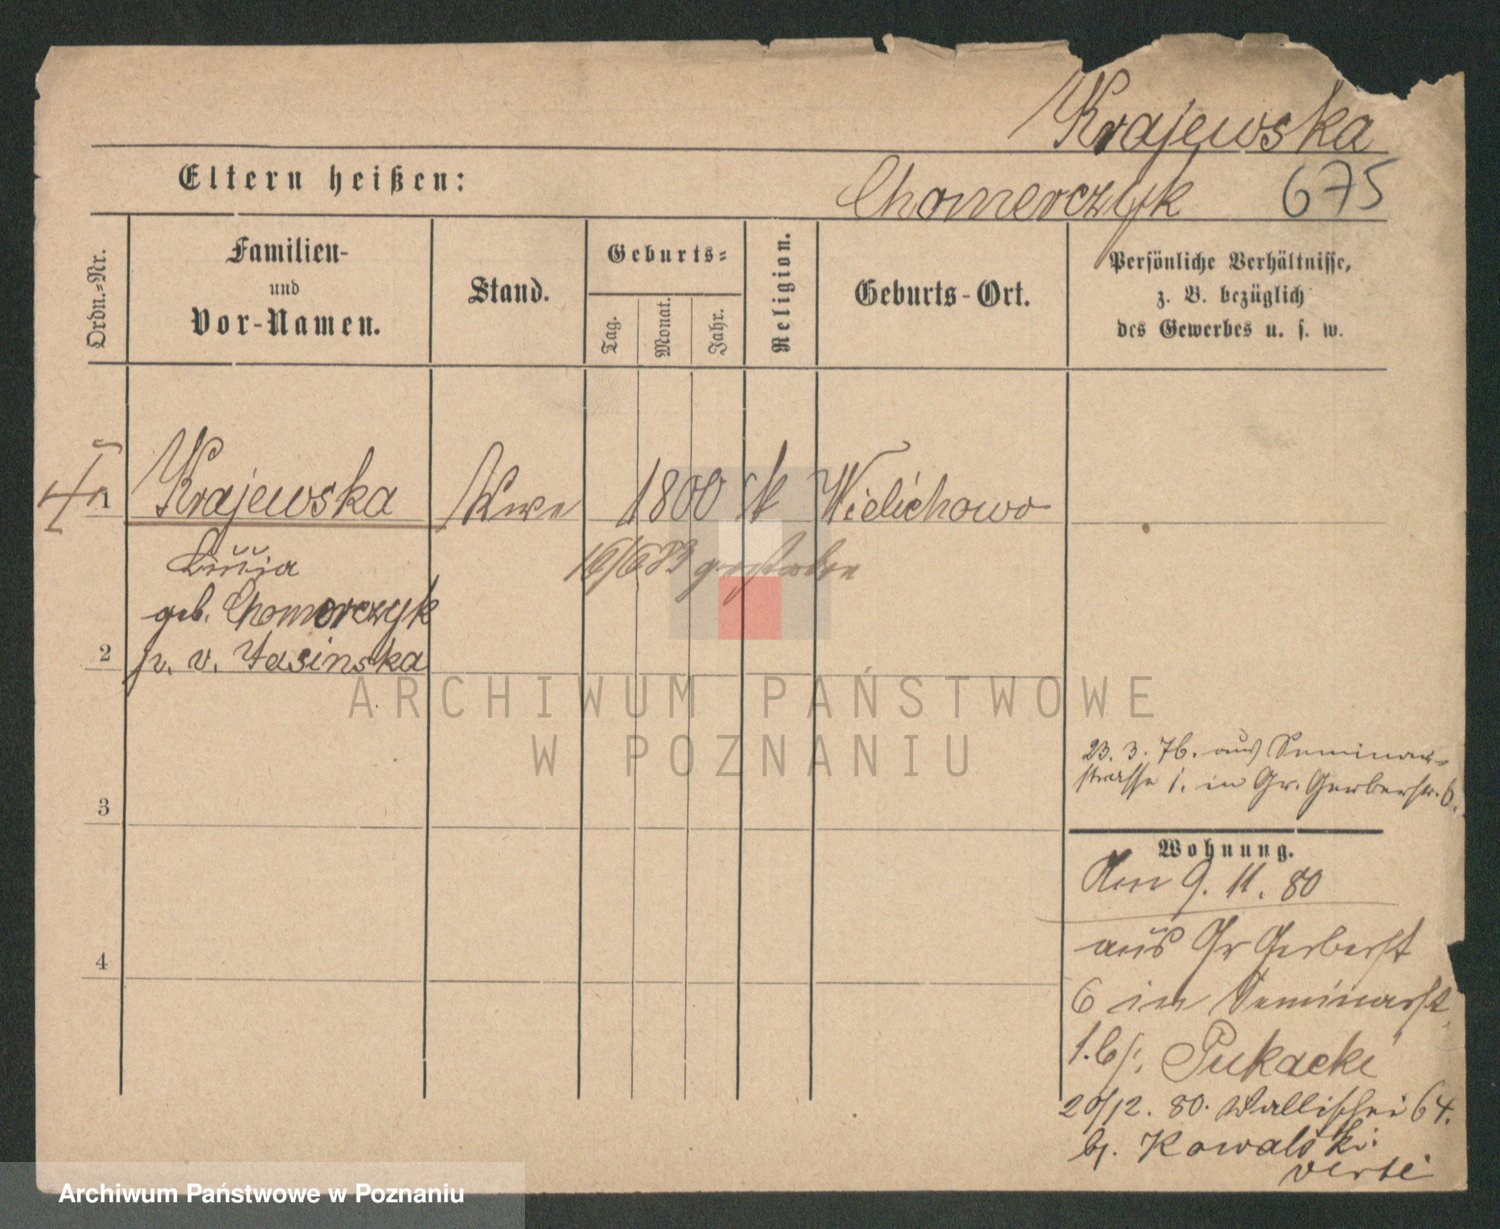 Krajewska
Eltern heißen:
Chomerczyk 675
Ordn.-Nr.
Familien-
und
Vor-Namen.
Stand.
Geburts-
Tag.
Monat.
Jahr.
Religion.
Geburts-Ort.
Persönliche Verhältnisse,
z. B. bezüglich
des Gewerbes u. s. w.
1 Krajewska Wwe 1800 k Wielichowo
16/6 83 gestorben
geb. Chomerczyk
2 p. v. Jasinska
ARCHIWUM PAŃSTWOWE
W POZNANIU
23. 3. 76. aus Seminar-
strasse 1. in Gr. Gerberstr. 6.
3
Wohnung.
Am 9. 11. 80
aus Gr Gerberst
4
6 in Seminarst.
1. b/. Pukacki
20/12. 80. Wallischei 64.
b/. Kowalski.
verte
Archiwum Państwowe w Poznaniu